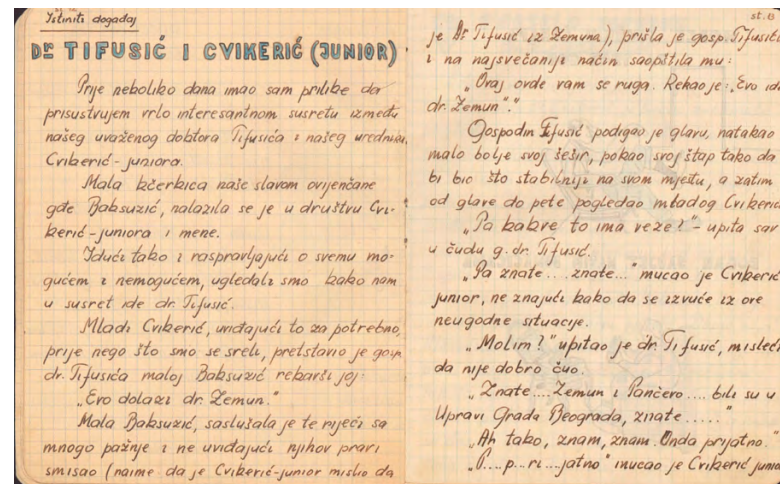 Istiniti događaj
Dr TIFUSIĆ I CVIKERIĆ (JUNIOR)
Prije nekoliko dana imao sam prilike da
prisustvujem vrlo interesantnom susretu između
našeg uvaženog doktora Tifusića i našeg urednika,
Cvikerić-juniora.
Mala kćerkica naše slavom ovjenčane
gđe Baksuzić, nalazila se je u društvu Cvi-
kerić-juniora i mene.
Idući tako i raspravljajući o svemu mo-
gućem i nemogućem, ugledali smo kako nam
u susret ide dr. Tifusić.
Mladi Cvikerić, uviđajući to za potrebno,
prije nego što smo se sreli, pretstavio je gosp.
dr. Tifusića maloj Baksuzić rekavši joj:
„Evo dolazi dr. Zemun."
Mala Baksuzić, saslušala je te riječi sa
mnogo pažnje i ne uviđajući njihov pravi
smisao (naime da je Cvikerić-junior mislio da
st. 8
je Dr Tifusić iz Zemuna), prišla je gosp. Tifusiću
i na najsvečaniji način saopštila mu:
„Ovaj ovde vam se ruga. Rekao je: „Evo ide
dr. Zemun"."
Gospodin Tifusić podigao je glavu, natakao
malo bolje svoj šešir, pokao svoj štap tako da
bi bio što stabilniji na svom mjestu, a zatim
od glave do pete pogledao mladog Cvikerića
„Pa kakve to ima veze?" - upita sav
u čudu g. dr. Tifusić.
„Pa znate.... znate..." mucao je Cvikerić
junior, ne znajući kako da se izvuče iz ove
neugodne situacije.
„Molim?" upitao je dr. Tifusić, misleći
da nije dobro čuo.
„Znate.... Zemun i Pančevo.... bili su u
Upravi Grada Beograda, znate....."
„Ah tako, znam, znam. Onda prijatno."
„P....p..ri...jatno" mucao je Cvikerić junior